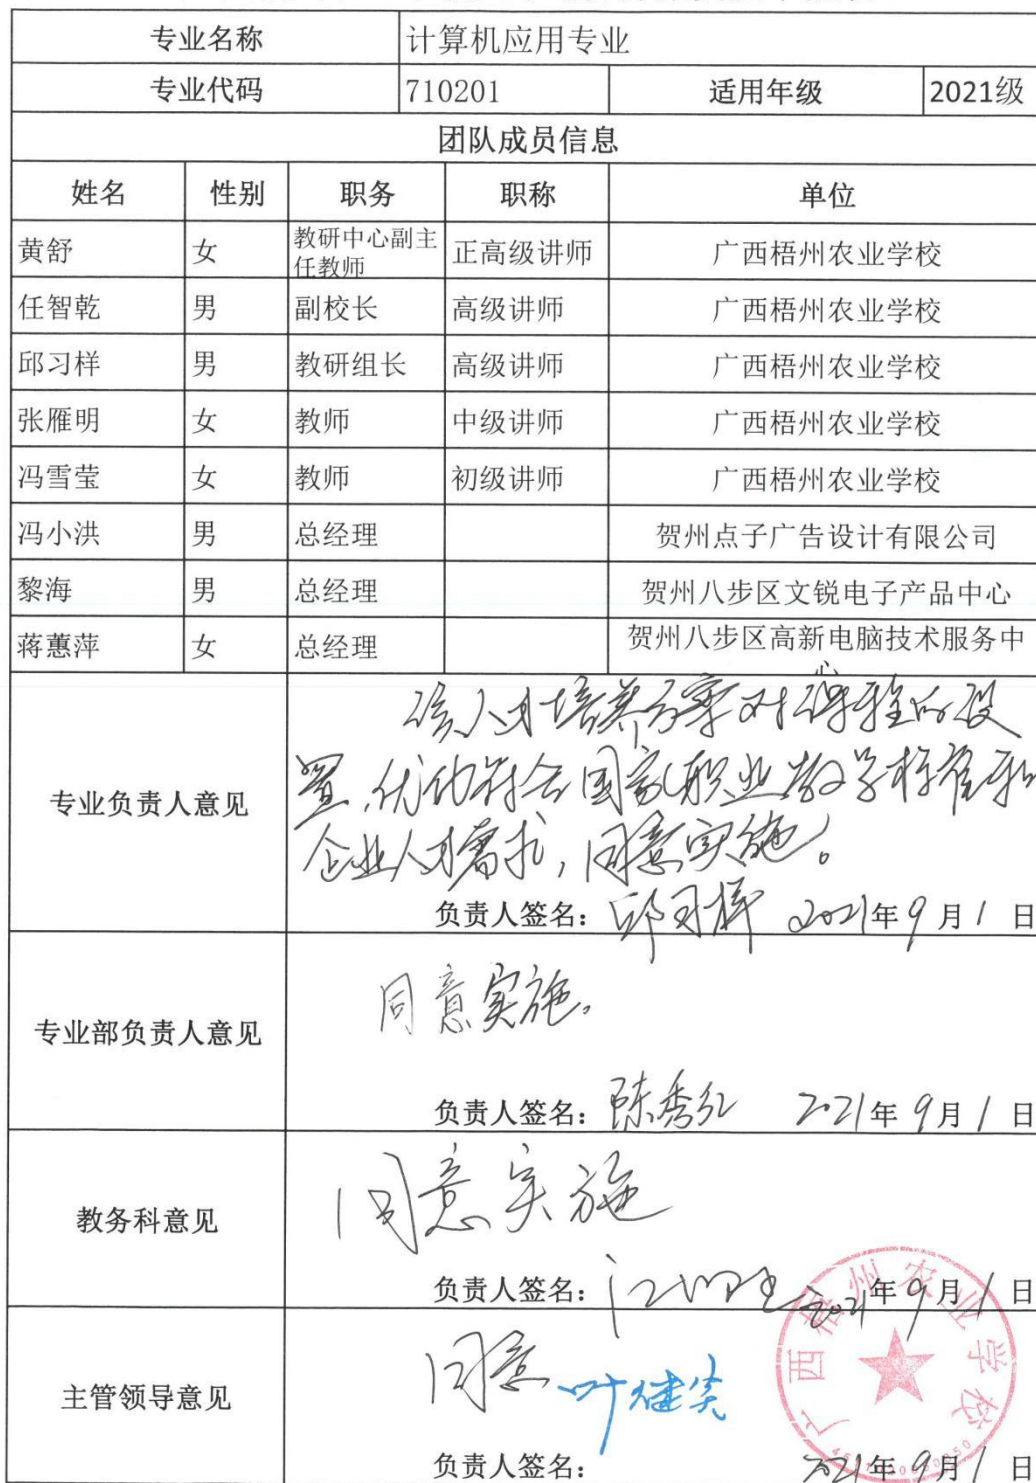 专业名称 计算机应用专业
专业代码 710201 适用年级 2021级
团队成员信息
姓名 性别 职务 职称 单位
黄舒 女 教研中心副主任教师 正高级讲师 广西梧州农业学校
任智乾 男 副校长 高级讲师 广西梧州农业学校
邱习样 男 教研组长 高级讲师 广西梧州农业学校
张雁明 女 教师 中级讲师 广西梧州农业学校
冯雪莹 女 教师 初级讲师 广西梧州农业学校
冯小洪 男 总经理 贺州点子广告设计有限公司
黎海 男 总经理 贺州八步区文锐电子产品中心
蒋蕙萍 女 总经理 贺州八步区高新电脑技术服务中心
专业负责人意见
该人才培养方案对课程的设
置,优化符合国家职业教学标准和
企业人才需求,同意实施。
负责人签名:邱习样 2021年9月1日
专业部负责人意见
同意实施。
负责人签名:陈秀红 2021年9月1日
教务科意见
同意实施
负责人签名: 2021年9月1日
主管领导意见
同意
负责人签名: 2021年9月1日
广西梧州农业学校